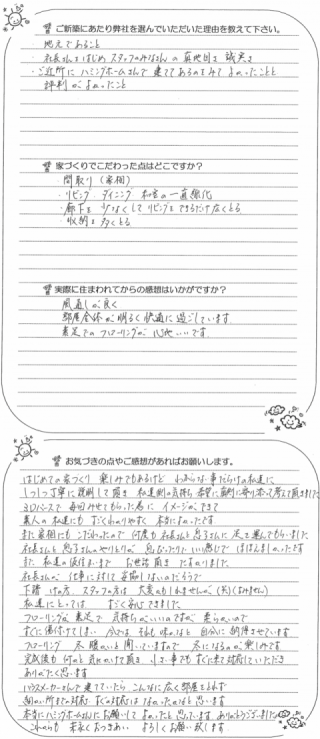 ご新築にあたり弊社を選んでいただいた理由を教えて下さい。
・地元であること
・社長さんをはじめ スタッフのみなさんの真面目さ 誠実さ
・ご近所に ハミングホームさんで 建ててあるのをみて よかったことと
評判が よかったこと
家づくりでこだわった点はどこですか？
・間取り（家相）
・リビング ダイニング 和室の一直線化
・廊下を 少なくして リビングを できるだけ広くとる
・収納を 多くとる
実際に住まわれてからの感想はいかがですか？
風通しが良く
部屋全体が 明るく 快適に 過ごしています
素足での フローリングが 心地いいです
お気づきの点やご感想があればお願いします。
はじめての家づくり 楽しみでもあるけど わからない事だらけの私達に
1つ1つ丁寧に 説明して頂き 私達側の気持ち 希望に 親身に寄り添って考えて頂きました
3Dパースで 毎回みせてもらった為に イメージができて
素人の私達にも すごくわかりやすく 本当によかったです
また 家相にも こだわったので 何度も 社長さんと 息子さんに 足を運んでもらいました
社長さんと 息子さんのやりとりが 息ぴったりで いい感じで ほほえましかったです
また 私達の仮住まいまで お世話頂き たすかりました
社長さんが 仕事に対して 妥協しないのだろうで
下請けの方 スタッフの方は 大変かもしれませんが（笑）（すみません）
私達にとっては すごく安心できました
フローリングが 素足で 気持ちがいいのですが 柔らかいので
すぐに傷付けてしまい 今では それも味のあると 自分に 納得させています
フローリング 冬 暖かいと 聞いていますので 冬になるのが 楽しみです
完成後も 何かと 気にかけて頂き 小さい事でも すぐに来て対応していただき
ありがたく思います
ハウスメーカーさんで 建てていたら こんなに広く部屋もとれず
細かい所までの対応 すぐの対応は なかったのかなと思います
本当にハミングホームさんに お願いして よかったと 思っています ありがとうございました
これからも 末永くおつきあい よろしくお願い致します